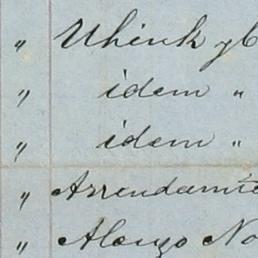 " Uhink y C
" idem "
" idem "
" Arrendamie
" Alonzo No